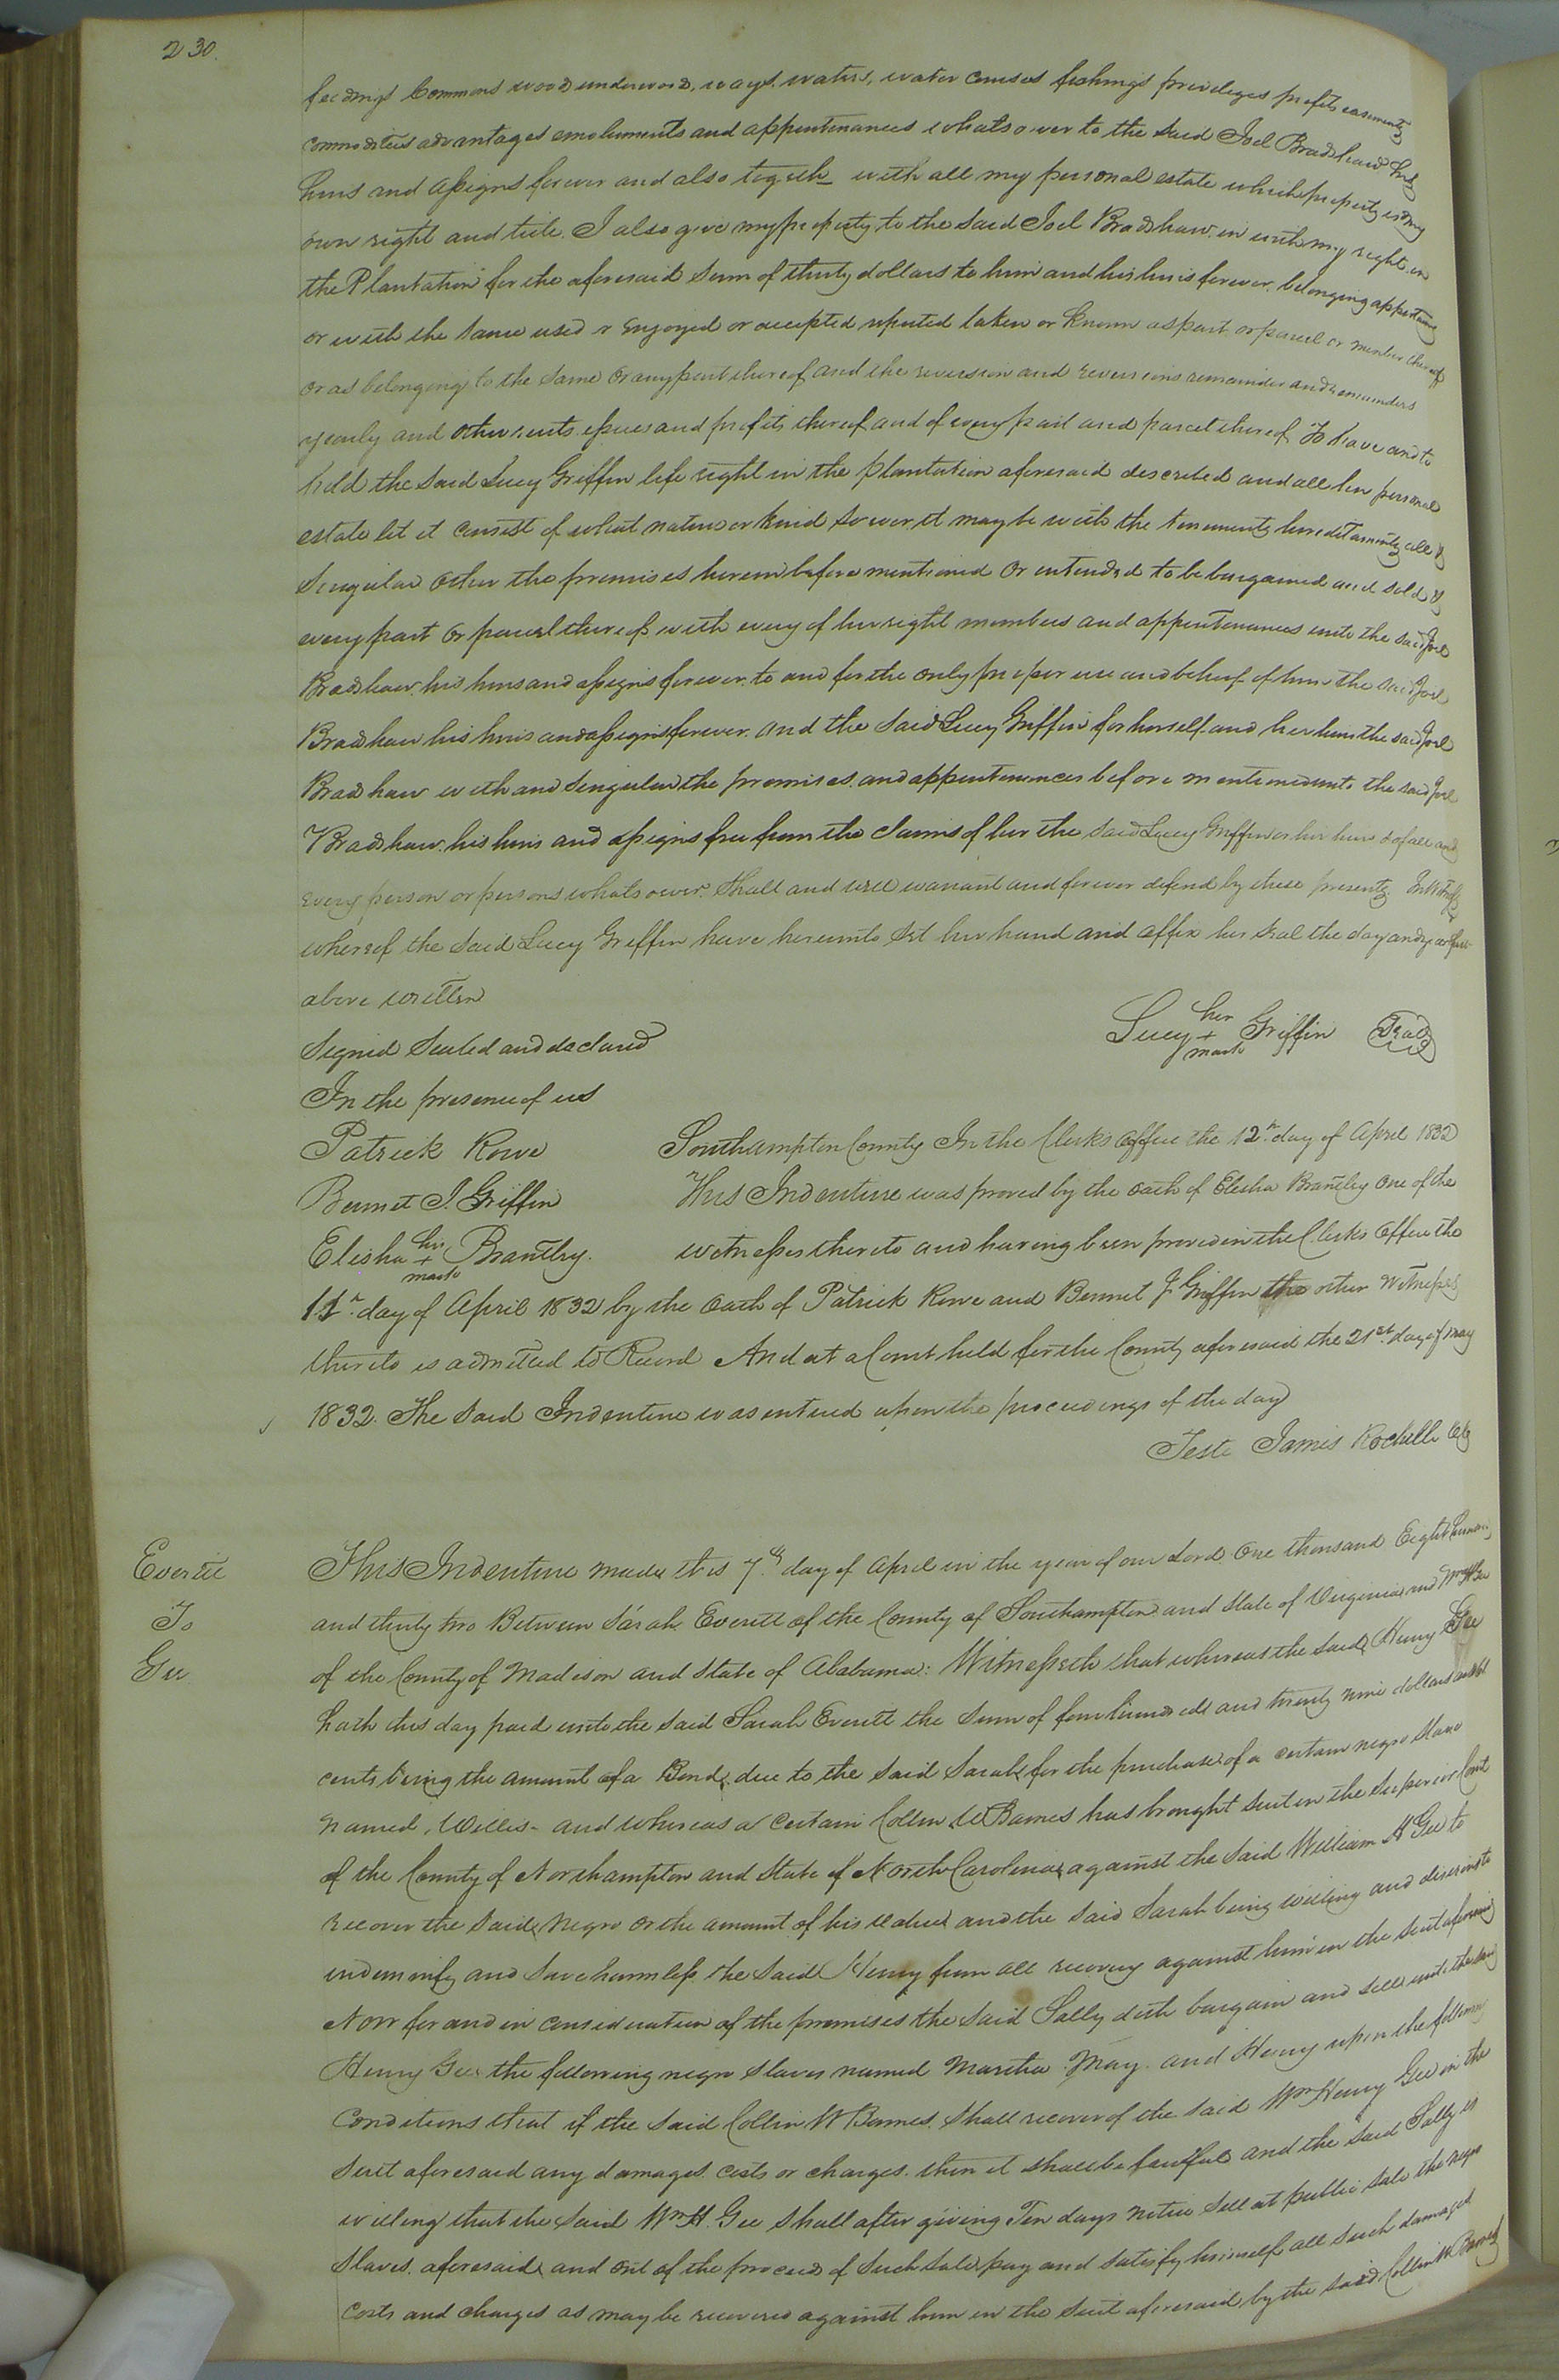 230.
feedings Commons wood underwood, ways, waters, water courses fishings privileges profits easements
commodities advantages emoluments and appurtenances whatsoever to the said Joel Bradshaw his
heirs and assigns forever and also together with all my personal estate which property is my
own right and title. I also give my property to the said Joel Bradshaw in with my right in
the Plantation for the aforesaid Sum of thirty dollars to him and his heirs forever. belonging appertaining
or with the same used or Enjoyed or accepted reputed taken or Known as part or parcel or member thereof
or as belonging to the same or any part thereof and the reversion and reversions remainder and remainders
yearly and other rents issues and profits thereof and of every part and parcel thereof To have and to
hold the said Lucy Griffin life right in the plantation aforesaid described and all her personal
estate let it consist of what nature or kind soever it may be with the tenements hereditaments all &
Singular other the premises herein before mentioned or intended to be bargained and sold &
every part or parcel thereof with every of her right members and appurtenances unto the said Joel
Bradshaw his heirs and assigns forever to and for the only proper use and behoof of him the said Joel
Bradshaw his heirs and assigns forever. and the said Lucy Griffin for herself and her heirs the said Joel
Bradshaw with and singular the premises and appurtenances before mentioned unto the said Joel
Bradshaw his heirs and assigns free from the claims of her the said Lucy Griffin or her heirs & of all and
every person or persons whatsoever. Shall and will warrant and forever defend by these presents. In Witness
whereof the said Lucy Griffin have hereunto set her hand and affix her seal the day and year first
above written
Signed Sealed and declared
In the presence of us
Lucy her + mark Griffin Seal
Patrick Rowe
Bennet J. Griffin
Elisha his + mark Brantley.
Southampton County In the Clerks office the 12th day of April 1832
This Indenture was proved by the oath of Elisha Brantley one of the
witnesses thereto and having been proved in the Clerks Office the
11th day of April 1832 by the oath of Patrick Rowe and Bennet J Griffin the other Witnesses
thereto is admitted to Record And at a Court held for the County aforesaid the 21st day of May
1832. The said Indenture was entered upon the proceedings of the day
Teste James Rochelle Clk
Everett
To
Gee
This Indenture made this 7th day of April in the year of our Lord One thousand Eight hundred
and thirty two Between Sarah Everett of the County of Southampton and State of Virginia and Wm H Gee
of the County of Madison and State of Alabama: Witnesseth that whereas the said Henry Gee
hath this day paid unto the said Sarah Everett the Sum of four hundred and twenty nine dollars and
cents being the amount of a Bond due to the said Sarah for the purchase of a certain negro slave
named, Willis - and whereas a certain Collin W Barnes has brought suit in the Superior Court
of the County of Northampton and State of North Carolina against the said William H Gee to
recover the said Negro or the amount of his value and the said Sarah being willing and desirous to
indemnify and save harmless the said Henry from all recovery against him in the suit aforesaid
Now for and in consideration of the premises the said Sally doth bargain and sell unto the said
Henry Gee the following negro slaves named Martha May and Henry upon the following
Conditions that if the said Collin W Barnes shall recover of the said Wm Henry Gee in the
suit aforesaid any damages costs or charges. then it shall be lawful and the said Sally is
willing that the said Wm H. Gee shall after giving Ten days notice sell at public sale the negro
slaves aforesaid and out of the proceeds of such sale pay and satisfy himself all such damages
costs and charges as may be recovered against him in the suit aforesaid by the said Collin W Barnes